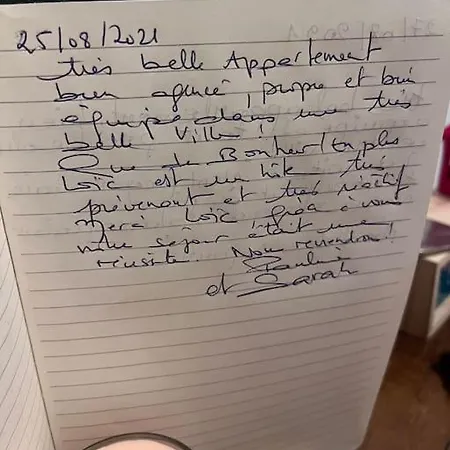 25/08/2021
très belle Appartement
bien agencé, propre et bien
équipé dans une très
belle Ville!
Que de Bonheur! en plus
Loïc est un hôte très
prévenant et très réactif
merci Loïc, grâce à vous
notre séjour était une
réussite. Nous reviendrons!
Pauline
et Sarah